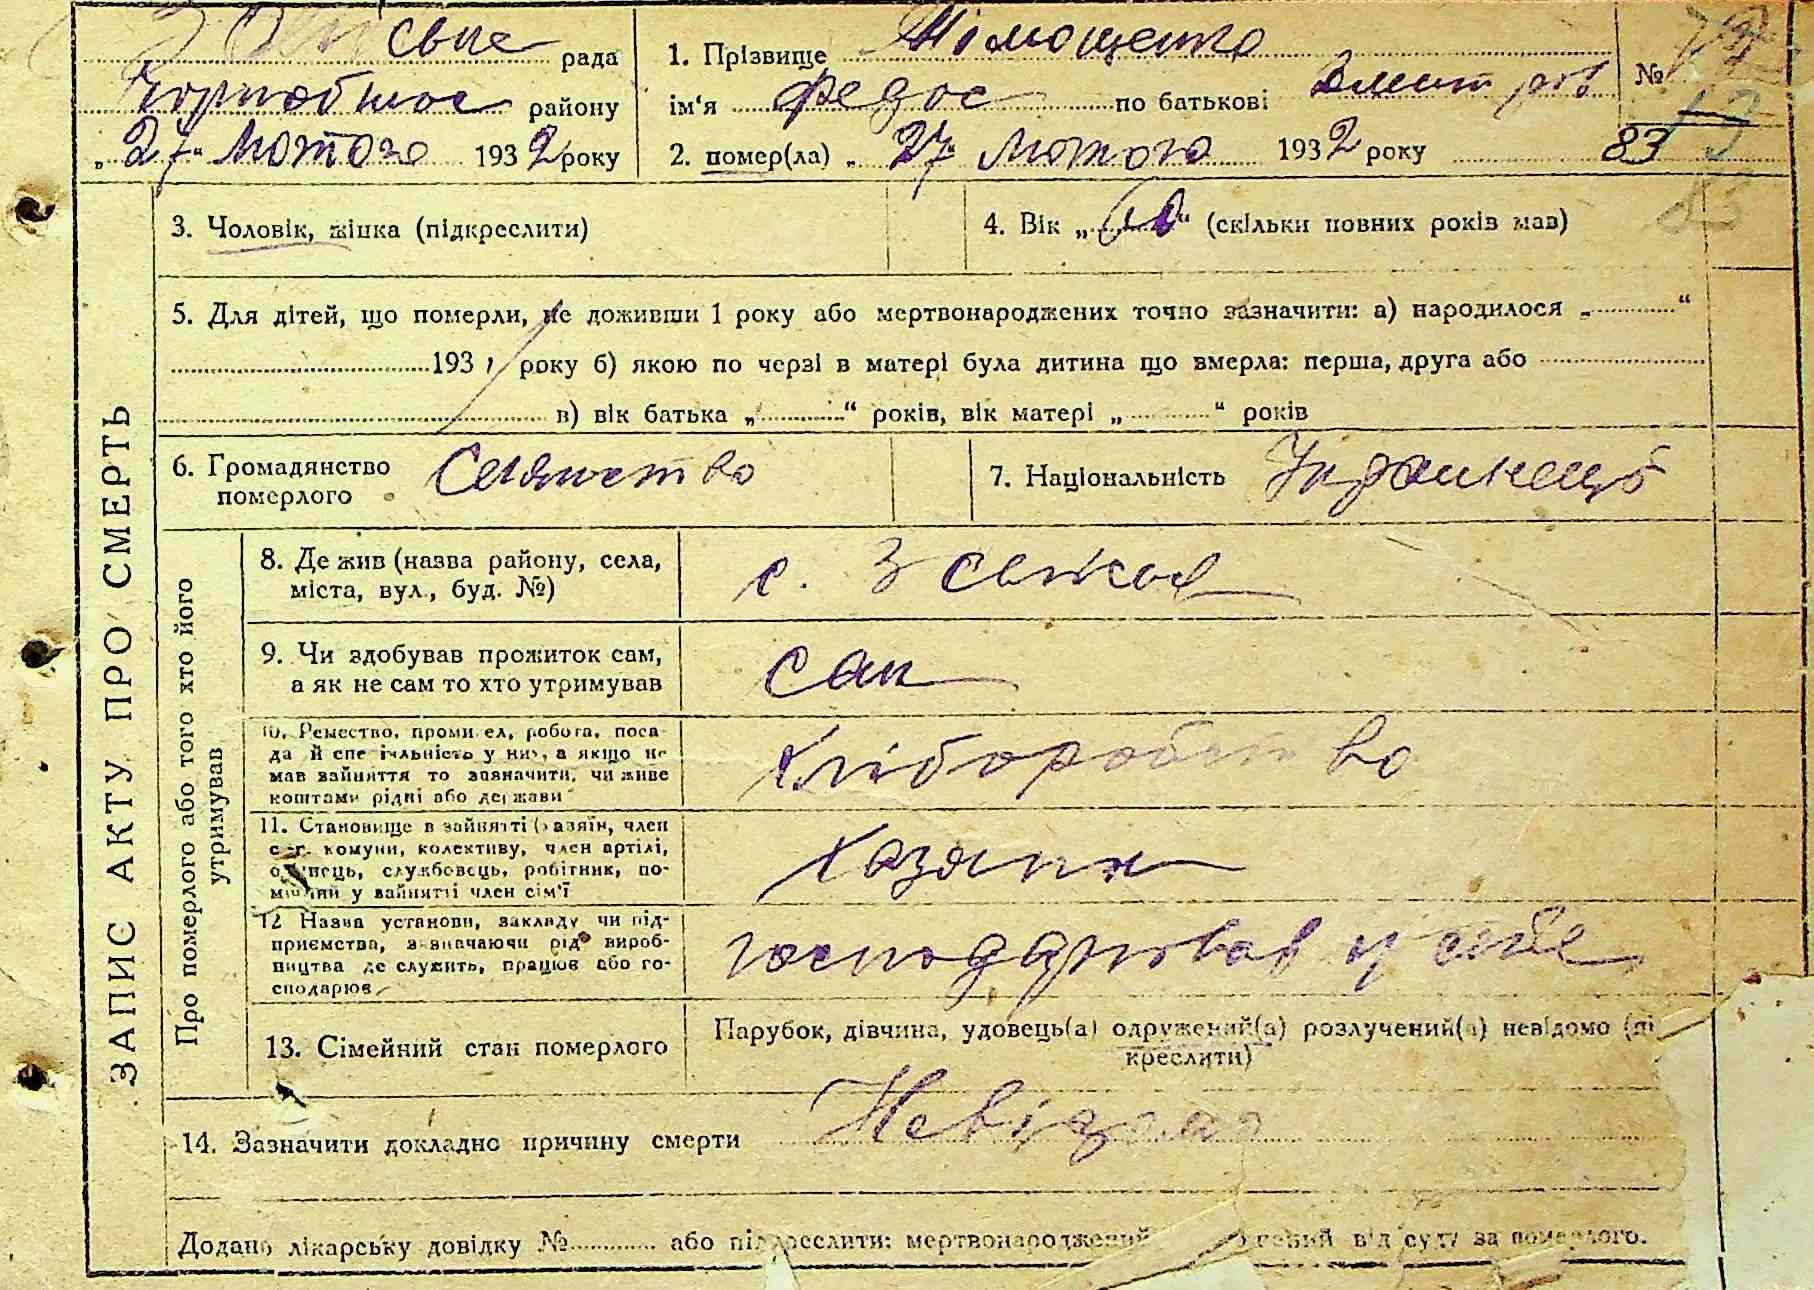 рада
району
„27“ Лютого 1932 року
1. Прізвище Тімощенко
ім'я Федос по батькові
№
2. помер(ла) „27“ Лютого 1932 року 83
83
ЗАПИС АКТУ ПРО СМЕРТЬ
3. Чоловік, жінка (підкреслити)
4. Вік „60“ (скільки повних років мав)
5. Для дітей, що померли, не доживши 1 року або мертвонароджених точно зазначити: а) народилося „ “
193 року б) якою по черзі в матері була дитина що вмерла: перша, друга або
в) вік батька „ “ років, вік матері „ “ років
6. Громадянство
померлого
Селянство
7. Національність Украинець
Про померлого або того хто його
утримував
8. Де жив (назва району, села,
міста, вул., буд. №)
с.
9. Чи здобував прожиток сам,
а як не сам то хто утримував
сам
10. Ремество, промисел, робота, поса-
да й спеціяльність у ній, а якщо не
мав зайняття то зазначити, чи живе
коштами рідні або держави
Хліборобство
11. Становище в зайнятті (хазяїн, член
с.-г. комуни, колективу, член артілі,
одинець, службовець, робітник, по-
мічний у зайнятті член сім'ї
Хазяин
12 Назва установи, закладу чи під-
приємства, зазначаючи рід вироб-
ництва де служить, працює або го-
сподарює
господарював у себе
13. Сімейний стан померлого
Парубок, дівчина, удовець(а) одружений(а) розлучений(а) невідомо (пі
креслити)
14. Зазначити докладно причину смерти Невідомо
Додано лікарську довідку № або підкреслити: мертвонароджений від суду за померлого.